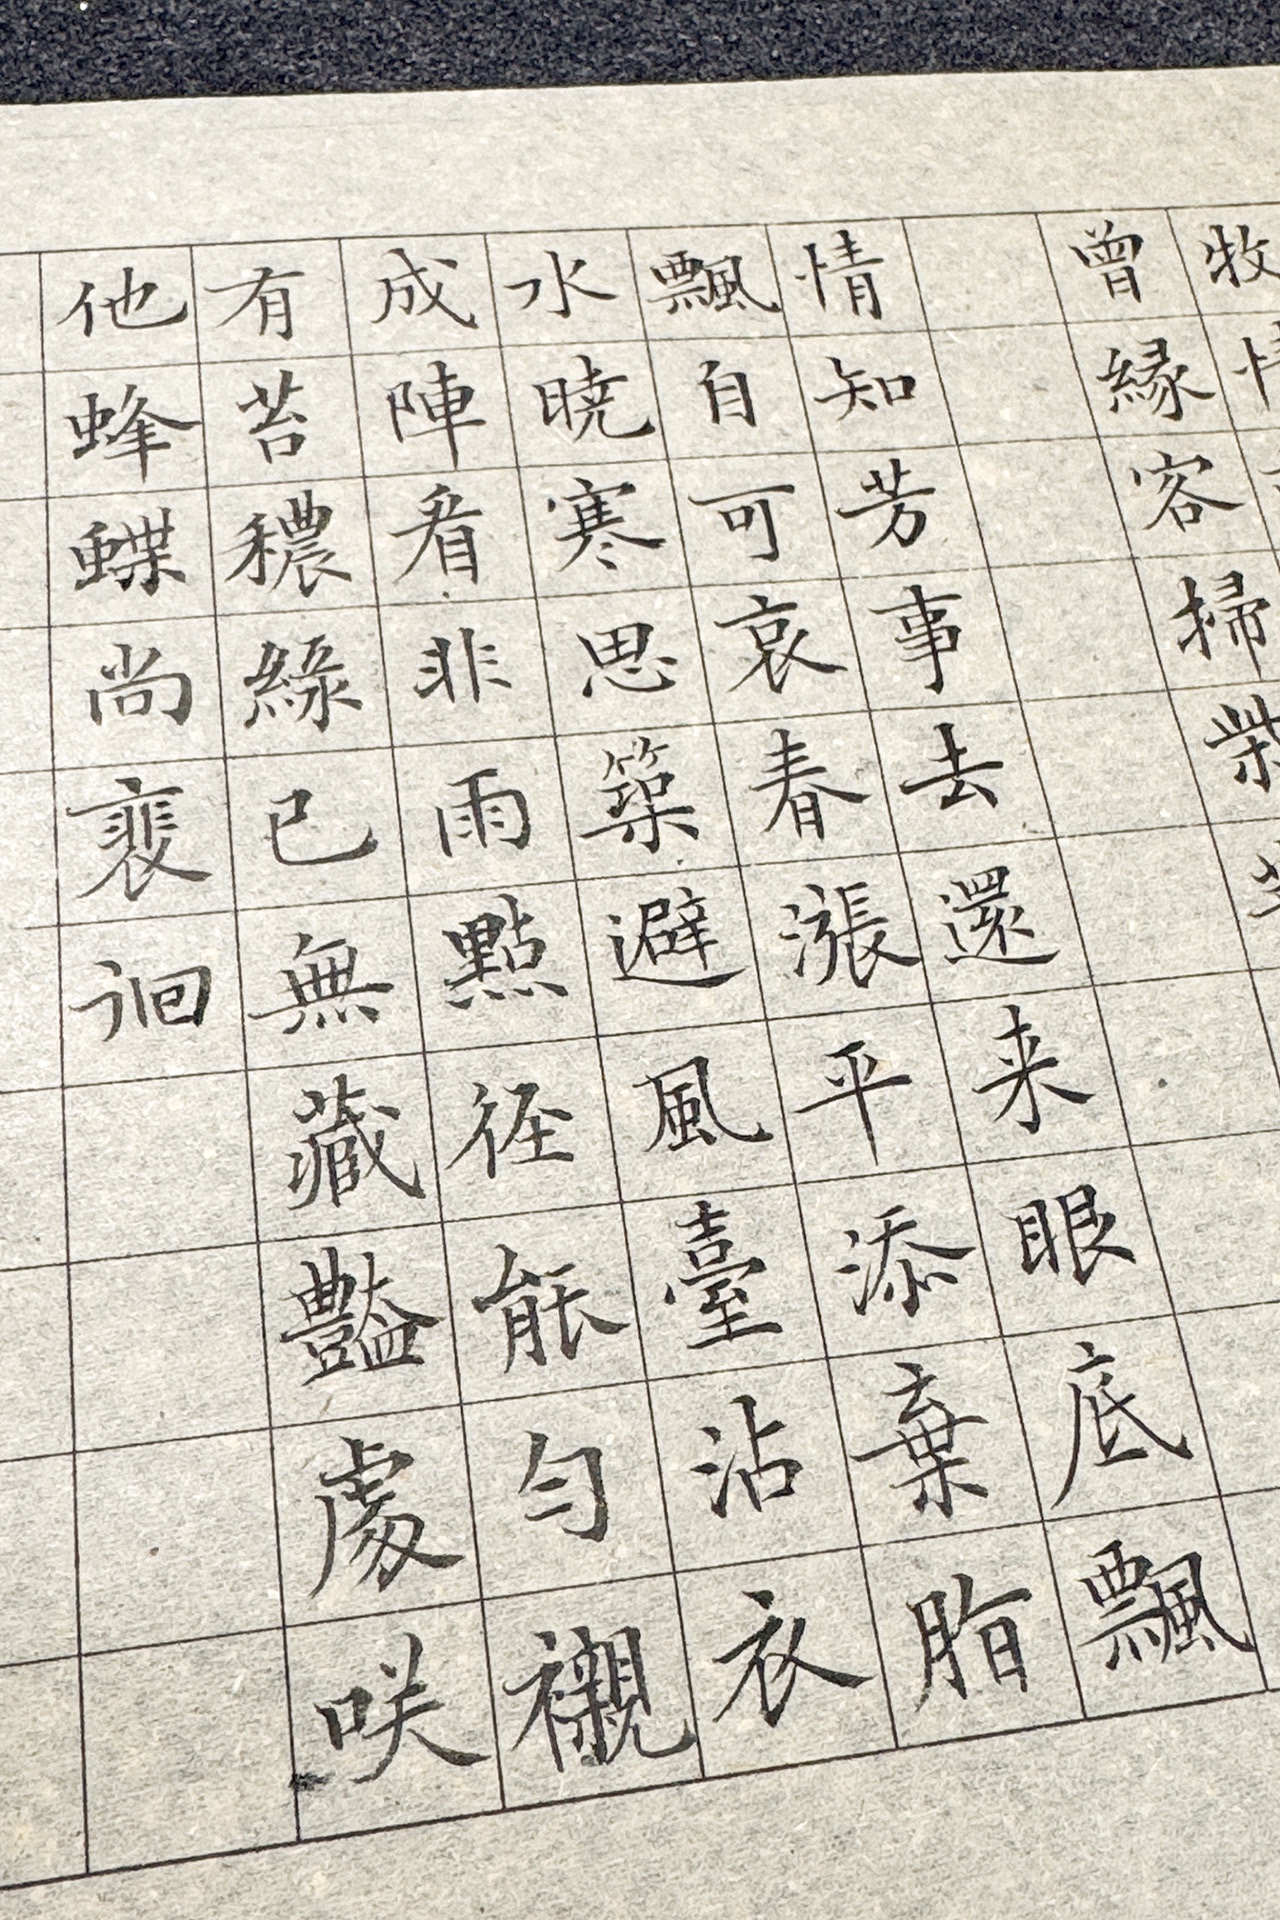 牧
曾縁客掃柴
情知芳事去還来眼底飄
飄自可哀春漲平添棄脂
水曉寒思築避風臺沾衣
成陣看非雨點徑能勻襯
有苔穠綠已無藏豔處咲
他蜂蝶尚裵徊